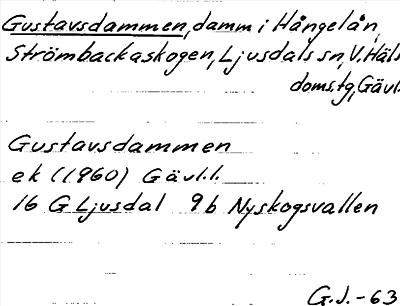 Gustavsdammen, damm i Hångelån,
Strömbackaskogen, Ljusdals sn, V. Häls
doms.tg, Gävl.
Gustavsdammen
ek (1960) Gävl.l.
16 G Ljusdal 9b Nyskogsvallen
G.J.-63